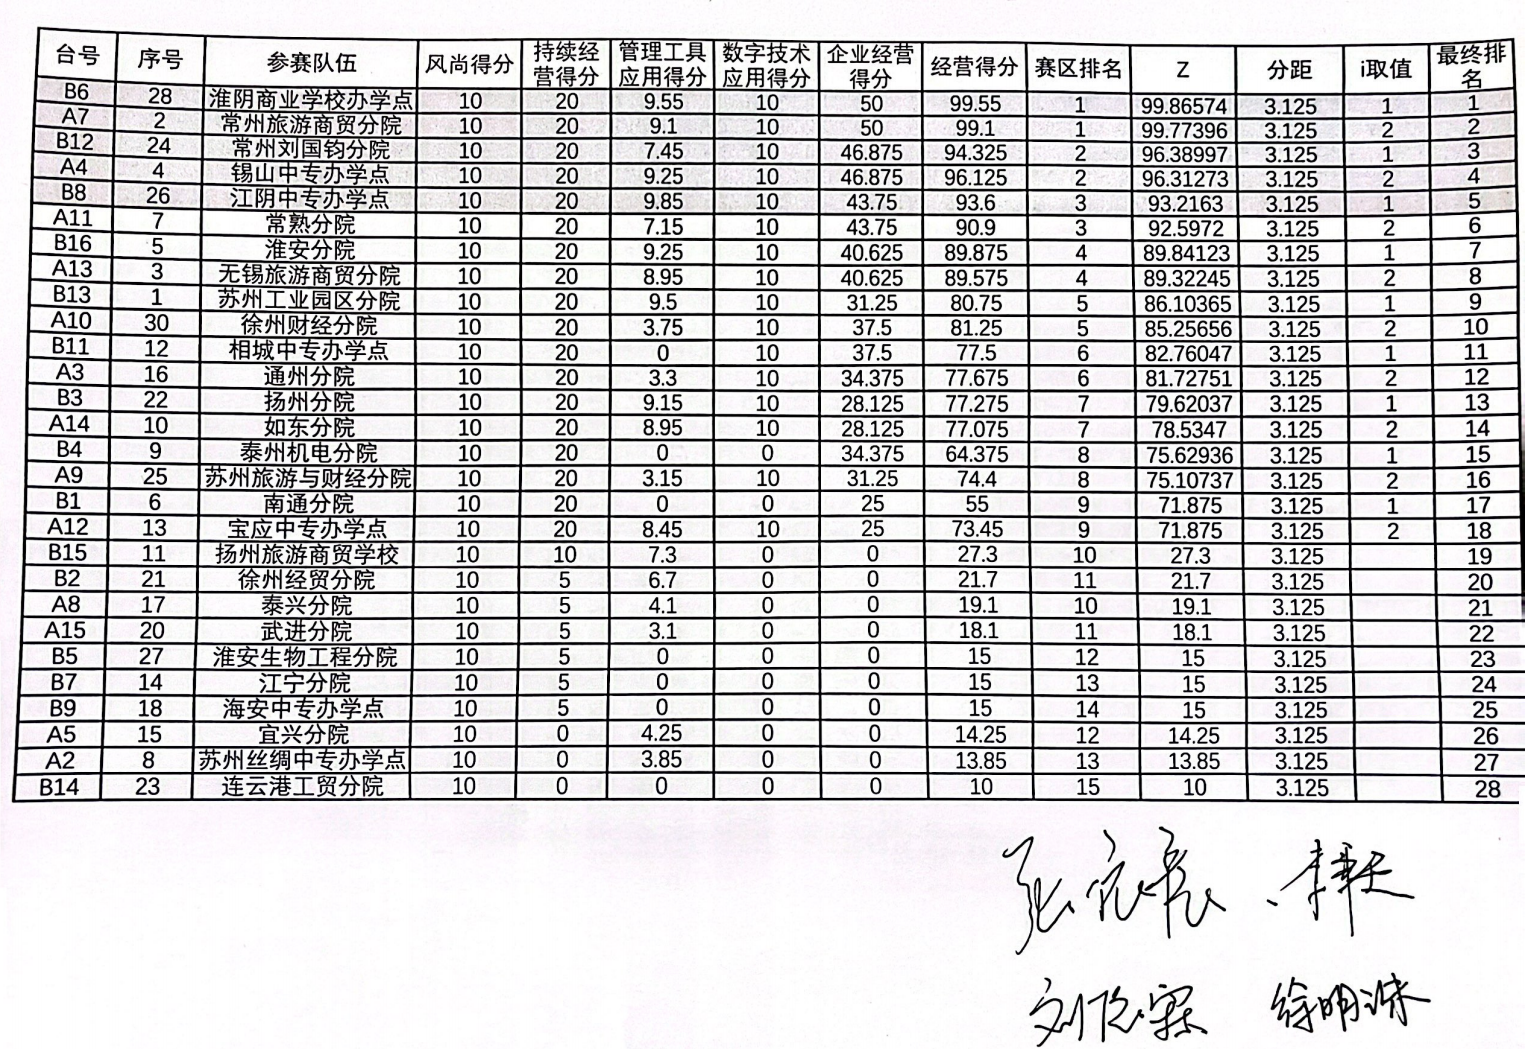 台号 序号 参赛队伍 风尚得分 持续经营得分 管理工具应用得分 数字技术应用得分 企业经营得分 经营得分 赛区排名 Z 分距 i取值 最终排名
B6 28 淮阴商业学校办学点 10 20 9.55 10 50 99.55 1 99.86574 3.125 1 1
A7 2 常州旅游商贸分院 10 20 9.1 10 50 99.1 1 99.77396 3.125 2 2
B12 24 常州刘国钧分院 10 20 7.45 10 46.875 94.325 2 96.38997 3.125 1 3
A4 4 锡山中专办学点 10 20 9.25 10 46.875 96.125 2 96.31273 3.125 2 4
B8 26 江阴中专办学点 10 20 9.85 10 43.75 93.6 3 93.2163 3.125 1 5
A11 7 常熟分院 10 20 7.15 10 43.75 90.9 3 92.5972 3.125 2 6
B16 5 淮安分院 10 20 9.25 10 40.625 89.875 4 89.84123 3.125 1 7
A13 3 无锡旅游商贸分院 10 20 8.95 10 40.625 89.575 4 89.32245 3.125 2 8
B13 1 苏州工业园区分院 10 20 9.5 10 31.25 80.75 5 86.10365 3.125 1 9
A10 30 徐州财经分院 10 20 3.75 10 37.5 81.25 5 85.25656 3.125 2 10
B11 12 相城中专办学点 10 20 0 10 37.5 77.5 6 82.76047 3.125 1 11
A3 16 通州分院 10 20 3.3 10 34.375 77.675 6 81.72751 3.125 2 12
B3 22 扬州分院 10 20 9.15 10 28.125 77.275 7 79.62037 3.125 1 13
A14 10 如东分院 10 20 8.95 10 28.125 77.075 7 78.5347 3.125 2 14
B4 9 泰州机电分院 10 20 0 0 34.375 64.375 8 75.62936 3.125 1 15
A9 25 苏州旅游与财经分院 10 20 3.15 10 31.25 74.4 8 75.10737 3.125 2 16
B1 6 南通分院 10 20 0 0 25 55 9 71.875 3.125 1 17
A12 13 宝应中专办学点 10 20 8.45 10 25 73.45 9 71.875 3.125 2 18
B15 11 扬州旅游商贸学校 10 10 7.3 0 0 27.3 10 27.3 3.125 19
B2 21 徐州经贸分院 10 5 6.7 0 0 21.7 11 21.7 3.125 20
A8 17 泰兴分院 10 5 4.1 0 0 19.1 10 19.1 3.125 21
A15 20 武进分院 10 5 3.1 0 0 18.1 11 18.1 3.125 22
B5 27 淮安生物工程分院 10 5 0 0 0 15 12 15 3.125 23
B7 14 江宁分院 10 5 0 0 0 15 13 15 3.125 24
B9 18 海安中专办学点 10 5 0 0 0 15 14 15 3.125 25
A5 15 宜兴分院 10 0 4.25 0 0 14.25 12 14.25 3.125 26
A2 8 苏州丝绸中专办学点 10 0 3.85 0 0 13.85 13 13.85 3.125 27
B14 23 连云港工贸分院 10 0 0 0 0 10 15 10 3.125 28
徐明洙